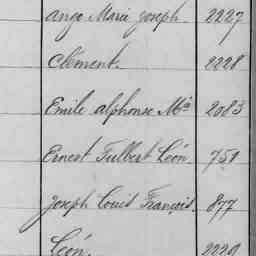 Ange Marie Joseph. 2227
Clément. 2228
Emile Alphonse Ma 2083
Ernest Fulbert Léon. 751
Joseph Louis François. 877
Léon. 2229